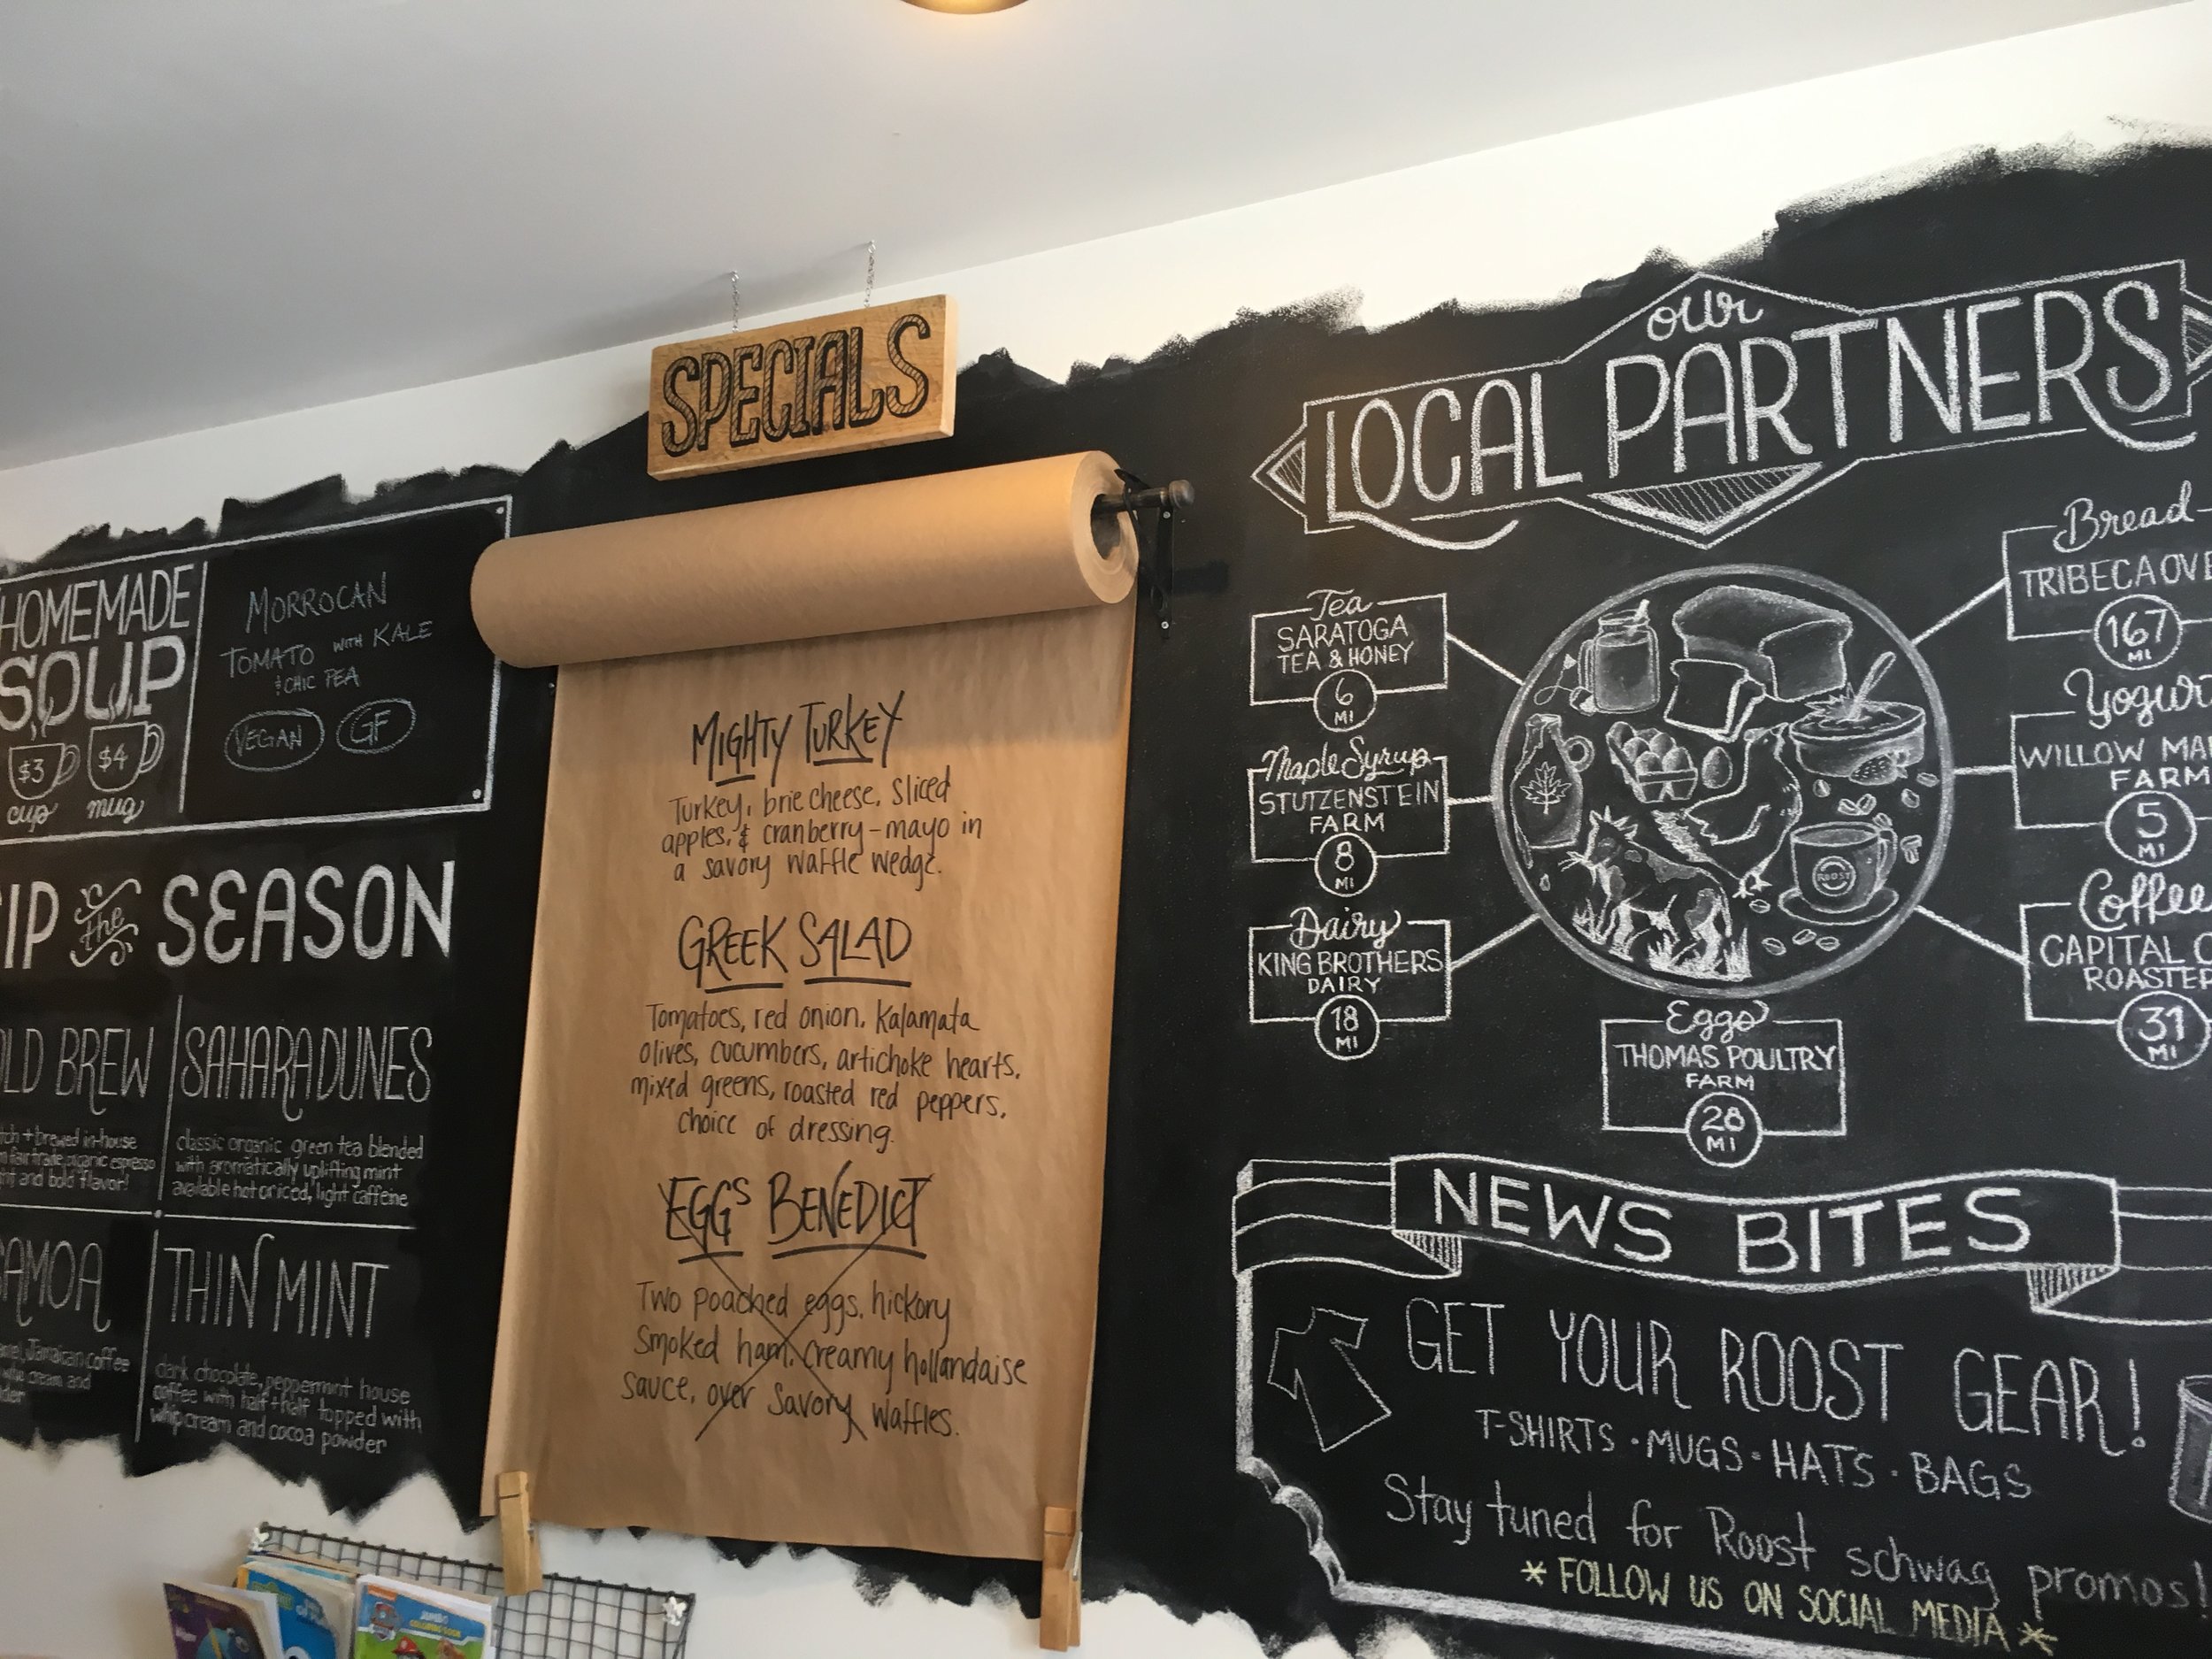 HOMEMADE
SOUP
$3
cup
$4
mug
MORROCAN
TOMATO WITH KALE
& CHIC PEA
VEGAN
GF
the SEASON
BREW
brewed in-house
fair trade organic espresso
and bold flavor!
SAHARA DUNES
classic organic green tea blended
with aromatically uplifting mint
available hot or iced, light caffeine
Jamaican coffee
cream and
THIN MINT
dark chocolate, peppermint house
coffee with half + half topped with
whip cream and cocoa powder
SPECIALS
MIGHTY TURKEY
Turkey, brie cheese, sliced
apples, & cranberry-mayo in
a savory waffle wedge.
GREEK SALAD
Tomatoes, red onion, Kalamata
olives, cucumbers, artichoke hearts,
mixed greens, roasted red peppers,
choice of dressing.
EGGS BENEDICT
Two poached eggs, hickory
Smoked ham, creamy hollandaise
sauce, over savory waffles.
our
LOCAL PARTNERS
Tea
SARATOGA
TEA & HONEY
6
MI
Maple Syrup
STUTZENSTEIN
FARM
8
MI
Dairy
KING BROTHERS
DAIRY
18
MI
ROOST
Eggs
THOMAS POULTRY
FARM
28
MI
Bread
TRIBECA
167
MI
Yogurt
WILLOW
FARM
5
MI
Coffee
CAPITAL
31
MI
NEWS BITES
GET YOUR ROOST GEAR!
T-SHIRTS · MUGS · HATS · BAGS
Stay tuned for Roost schwag promos!
* FOLLOW US ON SOCIAL MEDIA *
JUMBO
COLORING BOOK